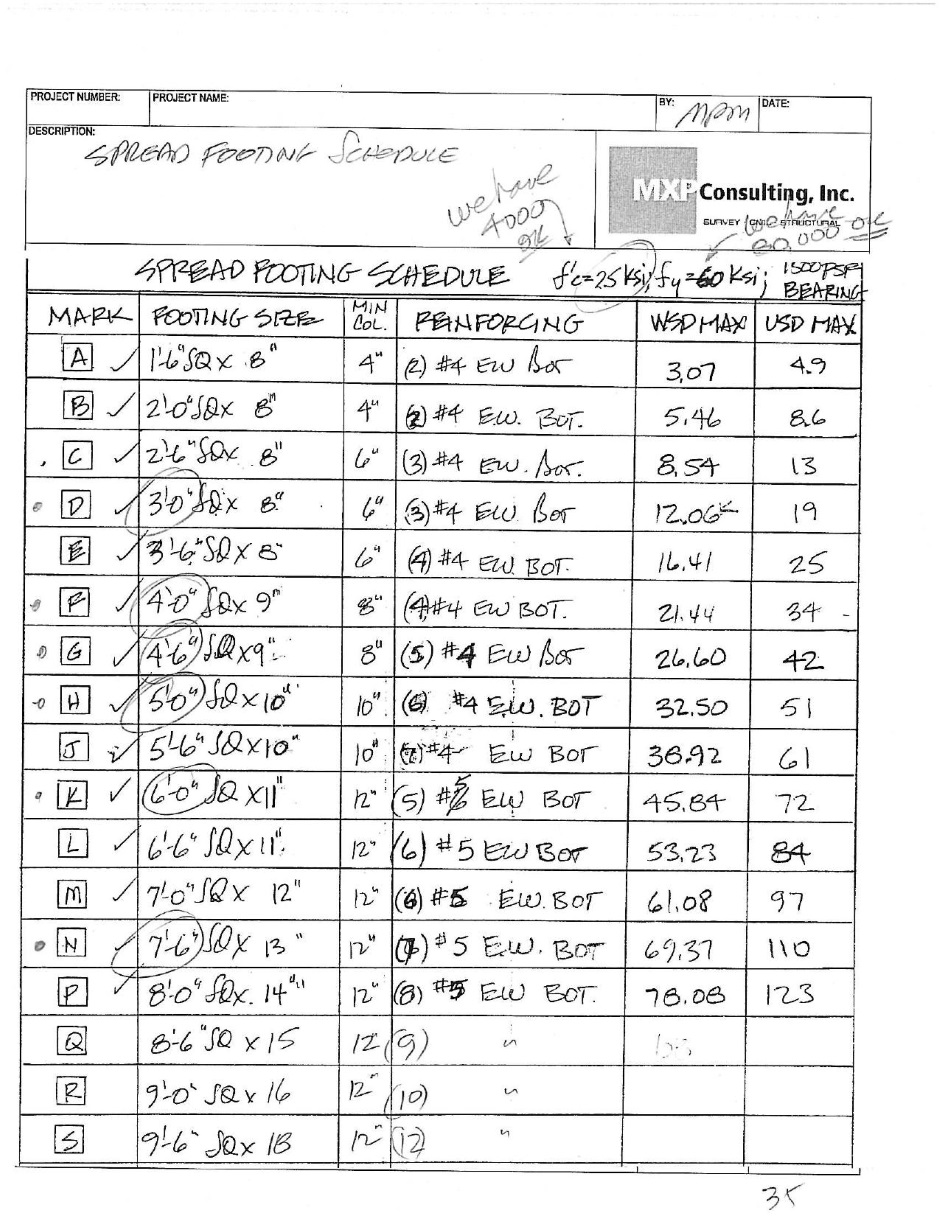 PROJECT NUMBER: PROJECT NAME: BY: MPM DATE:
DESCRIPTION:
SPREAD FOOTING SCHEDULE
MXP Consulting, Inc.
SURVEY CIVIL STRUCTURAL
we have
4000
ok
we have
60,000 ok
SPREAD FOOTING SCHEDULE f'c=25 ksi; fy=60 ksi; 1500 PSF BEARING
MARK FOOTING SIZE MIN COL. REINFORCING WSD MAX USD MAX
A ✓ 1'-6" SQ x 8" 4" (2) #4 EW Bot 3.07 4.9
B ✓ 2'-0" SQ x 8" 4" (2) #4 E.W. BOT. 5.46 8.6
C ✓ 2'-6" SQ x 8" 6" (3) #4 EW. Bot. 8.54 13
D ✓ 3'-0" SQ x 8" 6" (3) #4 EW. Bot 12.06k 19
E ✓ 3'-6" SQ x 8" 6" (4) #4 EW. BOT. 16.41 25
F ✓ 4'-0" SQ x 9" 8" (4) #4 EW BOT. 21.44 34
G ✓ 4'-6" SQ x 9" 8" (5) #4 EW Bot 26.60 42
H ✓ 5'-0" SQ x 10" 10" (6) #4 E.W. BOT 32.50 51
J ✓ 5'-6" SQ x 10" 10" (7) #4 EW BOT 38.92 61
K ✓ 6'-0" SQ x 11" 12" (5) #5 EW BOT 45.84 72
L ✓ 6'-6" SQ x 11" 12" (6) #5 EW BOT 53.23 84
M ✓ 7'-0" SQ x 12" 12" (6) #5 EW. BOT 61.08 97
N ✓ 7'-6" SQ x 13" 12" (7) #5 E.W. BOT 69.37 110
P ✓ 8'-0" SQ x 14" 12" (8) #5 EW BOT. 78.08 123
Q 8'-6" SQ x 15 12 (9) "
R 9'-0" SQ x 16 12" (10) "
S 9'-6" SQ x 18 12" (12) "
35